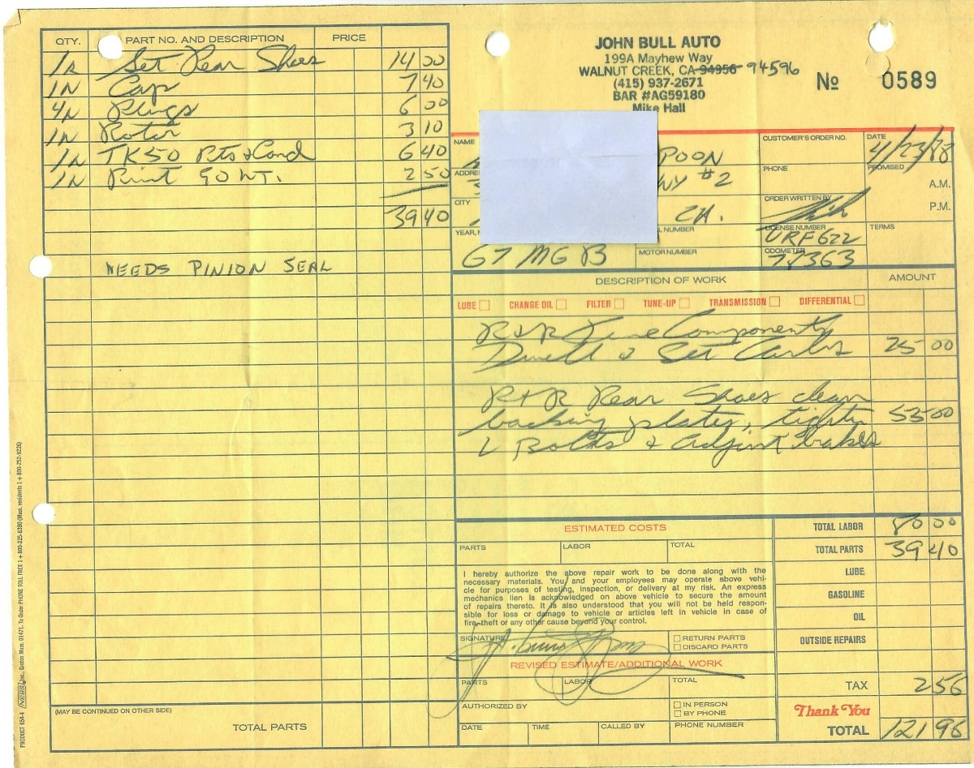 QTY. PART NO. AND DESCRIPTION PRICE
1R Set Rear Shoes 14 00
1N Cap 7 40
4N Plugs 6 00
1N Rotor 3 10
1N TK50 Pts & Cond 6 40
1N Print 90 WT. 2 50
39 40
NEEDS PINION SEAL
(MAY BE CONTINUED ON OTHER SIDE)
TOTAL PARTS
JOHN BULL AUTO
199A Mayhew Way
WALNUT CREEK, CA 94956 94596
(415) 937-2671
BAR #AG59180
Mike Hall
No 0589
NAME POON
CUSTOMER'S ORDER NO.
DATE 4/23/88
ADDRE NY #2
PHONE
PROMISED
A.M.
P.M.
CITY CA.
ORDER WRITTEN BY
YEAR, M 67 MGB
L NUMBER
MOTOR NUMBER
LICENSE NUMBER URF622
TERMS
ODOMETER 78363
DESCRIPTION OF WORK AMOUNT
LUBE CHANGE OIL FILTER TUNE-UP TRANSMISSION DIFFERENTIAL
R&R Tune Components
Dwell & Set Carbs 25 00
R+R Rear Shoes clean
backing plates, tighten 55 00
L Bolts & Adjust brakes
ESTIMATED COSTS
PARTS LABOR TOTAL
I hereby authorize the above repair work to be done along with the
necessary materials. You and your employees may operate above vehi-
cle for purposes of testing, inspection, or delivery at my risk. An express
mechanics lien is acknowledged on above vehicle to secure the amount
of repairs thereto. It is also understood that you will not be held respon-
sible for loss or damage to vehicle or articles left in vehicle in case of
fire, theft or any other cause beyond your control.
SIGNATURE
RETURN PARTS
DISCARD PARTS
REVISED ESTIMATE/ADDITIONAL WORK
PARTS LABOR TOTAL
AUTHORIZED BY
IN PERSON
BY PHONE
DATE TIME CALLED BY PHONE NUMBER
TOTAL LABOR 80 00
TOTAL PARTS 39 40
LUBE
GASOLINE
OIL
OUTSIDE REPAIRS
TAX 2 56
Thank You
TOTAL 121 96